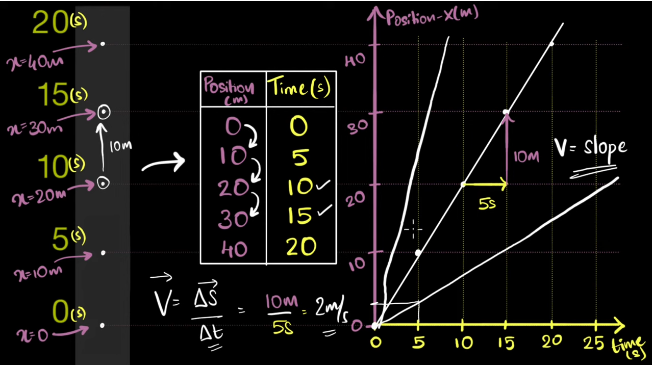 20(s)
x=40m
15(s)
x=30m
10m
10(s)
x=20m
5(s)
x=10m
0(s)
x=0
Position (m) Time(s)
0 0
10 5
20 10 ✓
30 15 ✓
40 20
V = ΔS/Δt = 10m/5s = 2m/s
Position-x(m)
40
30
20
10
0
10m
5s
V= slope
0 5 10 15 20 time (s)